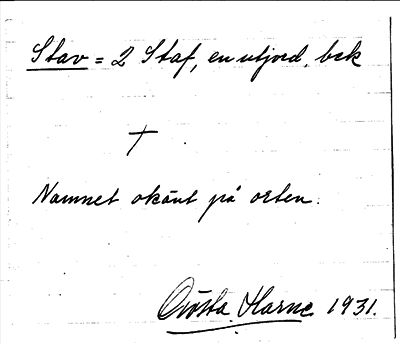 Stav = 2 Staf, en utjord, bek
†
Namnet okänt på orten.
Gösta Harne 1931.